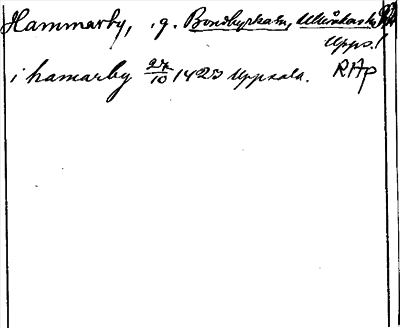 Hammarby, i g. Bondkyrka sn, Ulleråkers hd
Upps. l
i hamarby 27/10 1423 Uppsala. RAp